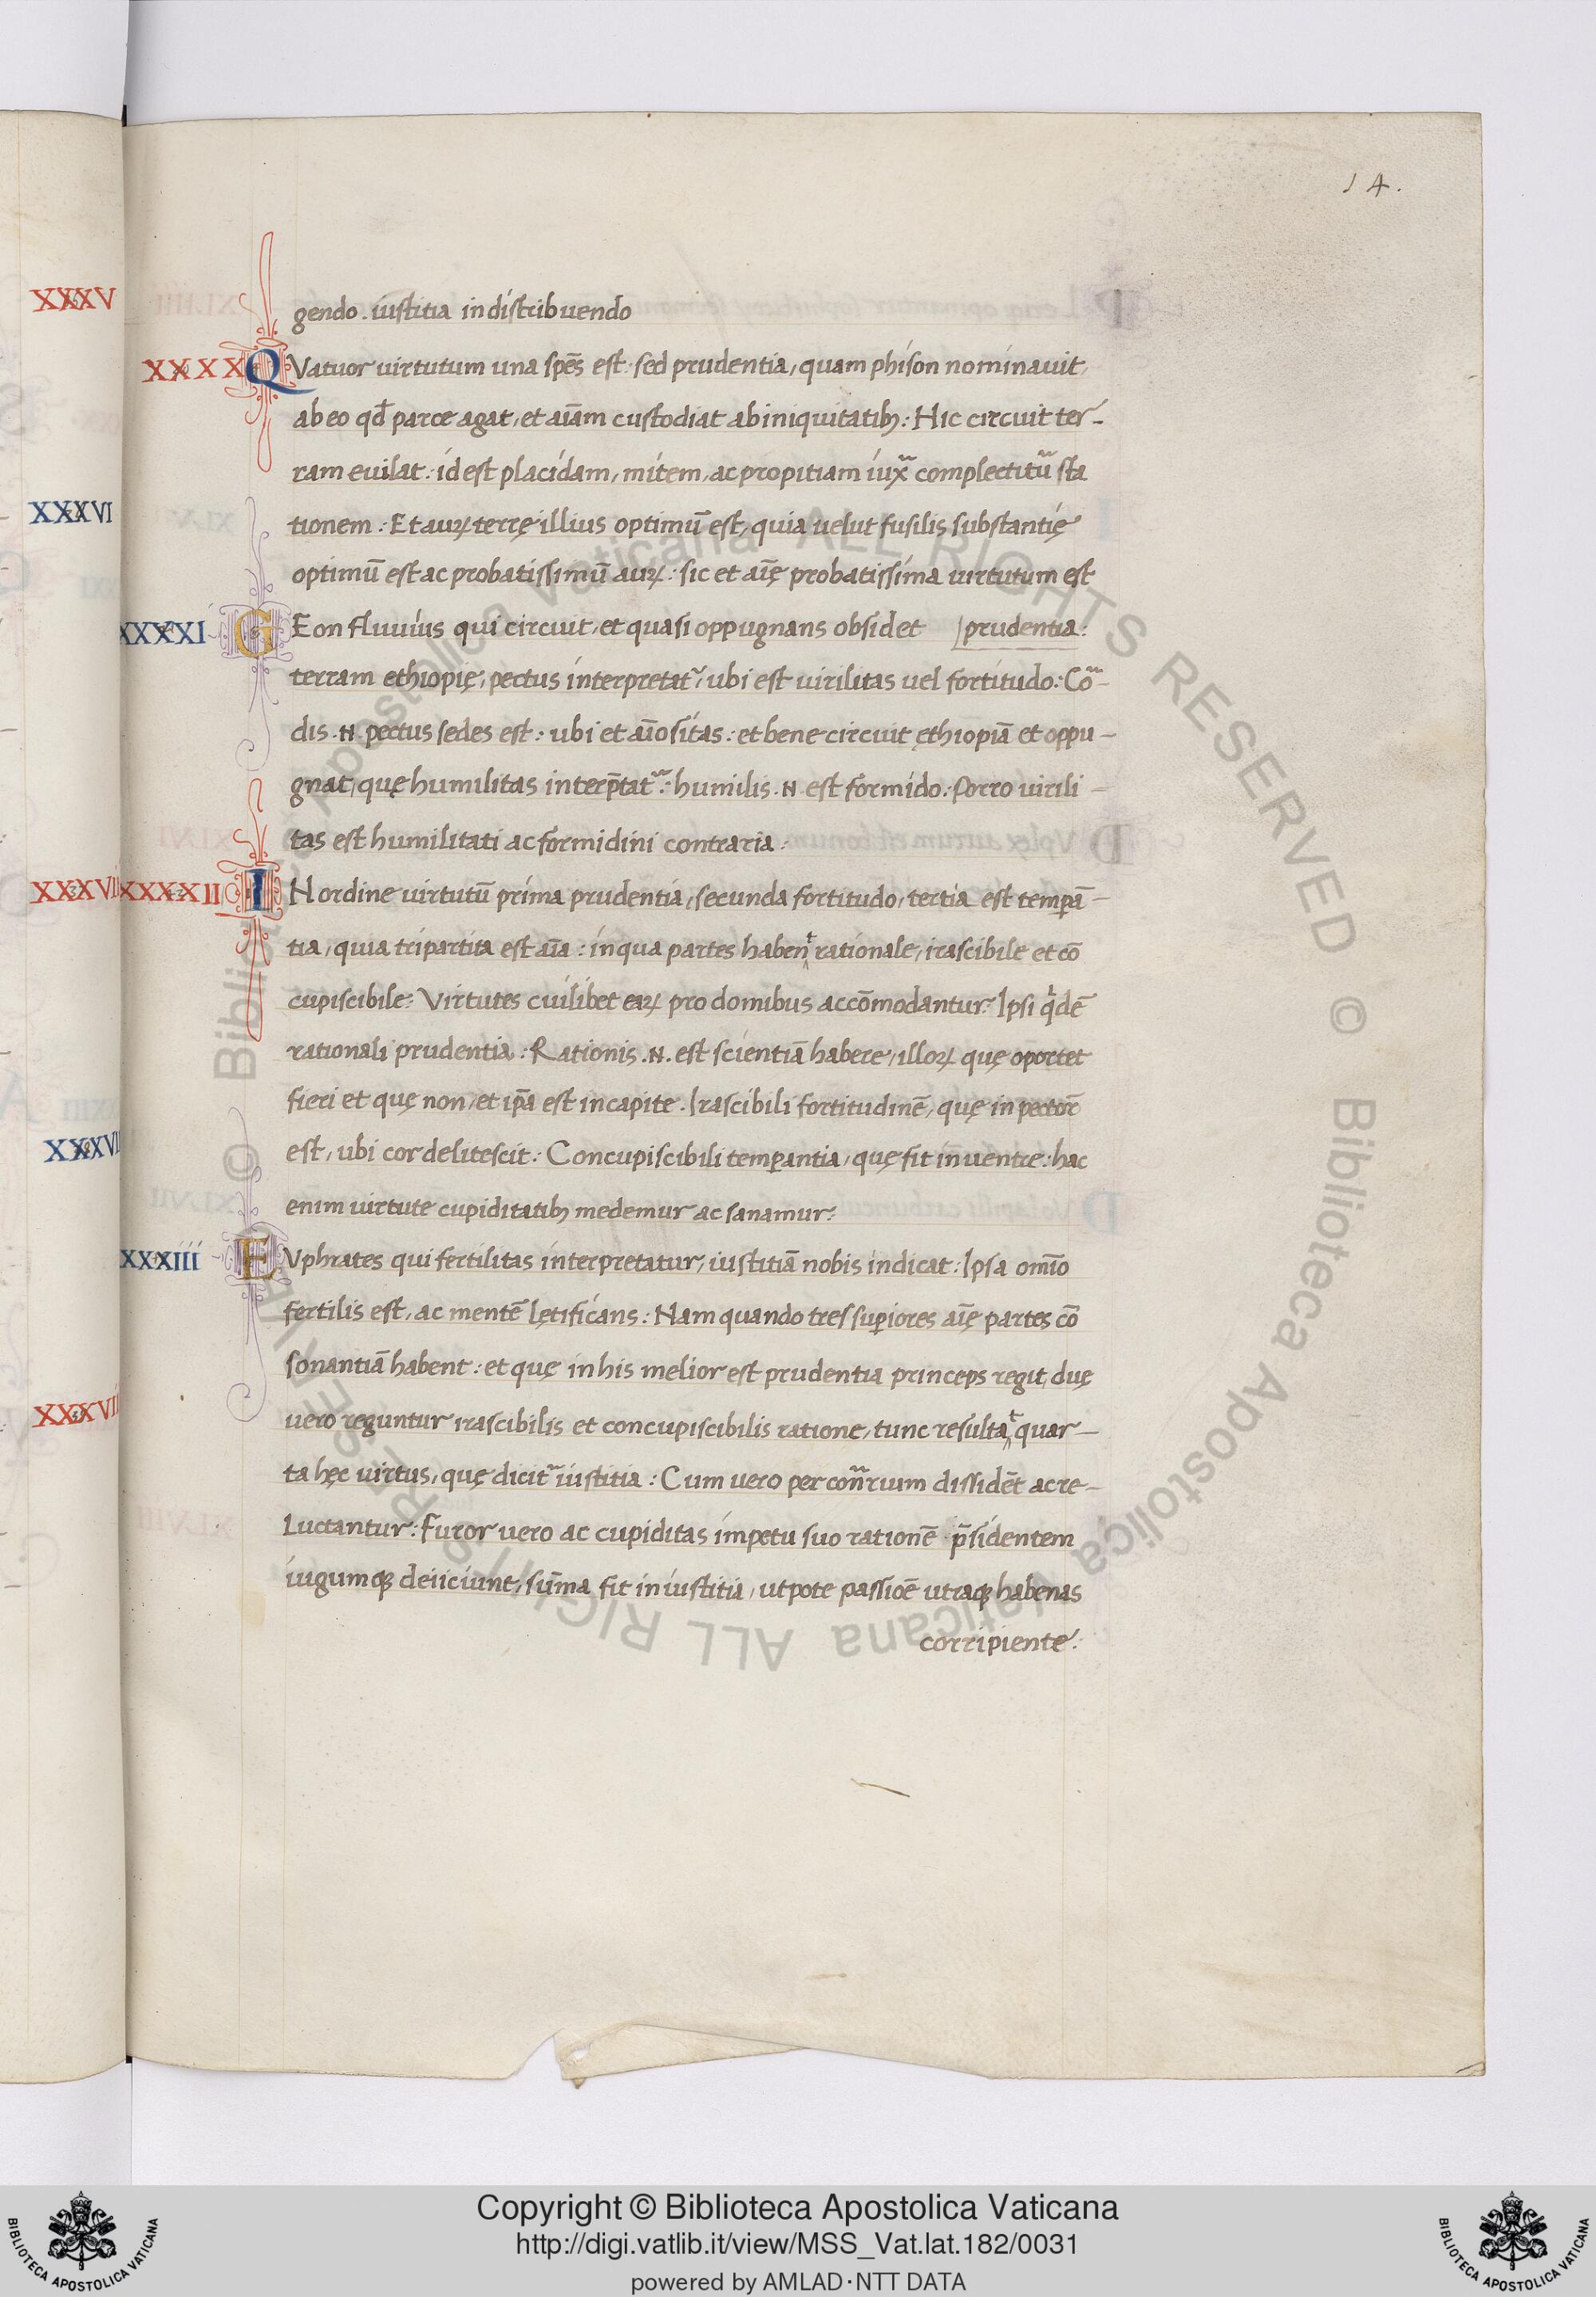 14.
XXXV
gendo . iustitia in distribuendo
XXXX QVatuor virtutum una spēs est· sed prudentia, quam phison nominavit,
ab eo qđ parce agat, et aīam custodiat ab iniquitatibȝ: Hic circuit ter-
ram evilat: id est placidam, mitem, ac propitiam iux̃ complectitũ sta
XXXVI
tionem: Et auꝝ terrę illius optimū est, quia velut fusilis substantię
optimū est ac probatissimū auꝝ: sic et aīę probatissima virtutum est
XXXXI GEon fluvius qui circuit, et quasi oppugnans obsidet prudentia:
terram ethiopię, pectus interpretat᷑, ubi est virilitas vel fortitudo: Co᷑-
dis .N. pectus sedes est: ubi et aīositas: et bene circuit ęthiopiā et oppu-
gnat, quę humilitas interp̄tat᷑: humilis .N. est formido: Porro virili-
tas est humilitati ac formidini contraria:
XXXVII XXXXII IN ordine virtutū prima prudentia, secunda fortitudo, tertia est temperā-
tia, quia tripartita est aīa: in qua partes habent rationale, irascibile et cō
cupiscibile: Virtutes cuilibet eaꝝ pro domibus accōmodantur: Ipsi qͥdē
rationali prudentia: Rationis .N. est scientiā habere, illoꝝ quę oportet
fieri et quę non, et ip̄a est in capite. Irascibili fortitudinē, quę in pectorē
XXXVII
est, ubi cor delitescit: Concupiscibili temperantia, quę fit in ventre: hac
enim virtute cupiditatibȝ medemur ac sanamur:
XXXIII EVphrates qui fertilitas interpretatur, iustitiā nobis indicat: Ipsa omīo
fertilis est, ac mentē lętificans: Nam quando tres superiores aīę partes cō
sonantiā habent: et quę in his melior est prudentia princeps regit, duę
XXXVII
vero reguntur irascibilis et concupiscibilis ratione, tunc resultat quar-
ta hęc virtus, quę dicit᷑ iustitia: Cum vero per con̄rium dissidēt ac re-
luctantur: Furor vero ac cupiditas impetu suo rationē p̄sidentem
iugumqꝫ deiiciunt, sum̄a fit iniustitia, utpote passioē utraqꝫ habenas
corripiente:
Copyright © Biblioteca Apostolica Vaticana
http://digi.vatlib.it/view/MSS_Vat.lat.182/0031
powered by AMLAD·NTT DATA
BIBLIOTECA APOSTOLICA VATICANA
BIBLIOTECA APOSTOLICA VATICANA
© Biblioteca Apostolica Vaticana ALL RIGHTS RESERVED © Biblioteca Apostolica Vaticana ALL RIGHTS RESERVED